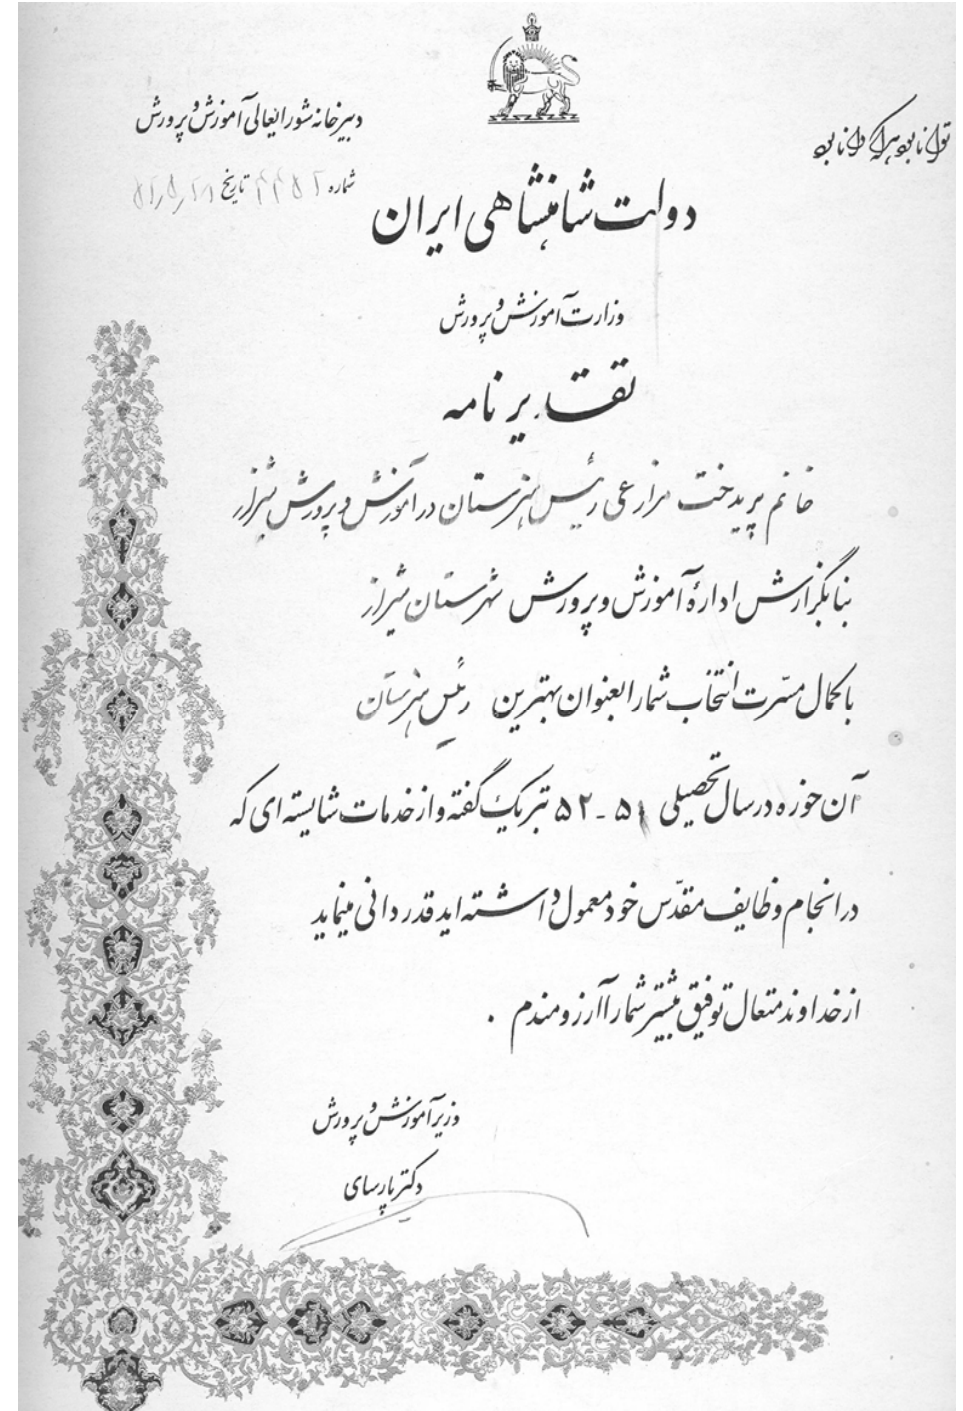 توانا بود هر که دانا بود
دبیرخانه شورایعالی آموزش و پرورش
شماره ۴۴۵۲ تاریخ
دولت شاهنشاهی ایران
وزارت آموزش و پرورش
تقدیر نامه
خانم پریدخت مزارعی رئیس هنرستان در آموزش و پرورش شیراز
بنا بگزارش ادارهٔ آموزش و پرورش شهرستان شیراز
با کمال مسرّت انتخاب شما را بعنوان بهترین رئیس هنرستان
آن حوزه در سال تحصیلی ۵۱ - ۵۲ تبریک گفته و از خدمات شایسته ای که
در انجام وظایف مقدّس خود معمول داشته اید قدردانی مینماید
از خداوند متعال توفیق بیشتر شما را آرزومندم .
وزیر آموزش و پرورش
دکتر پارسای